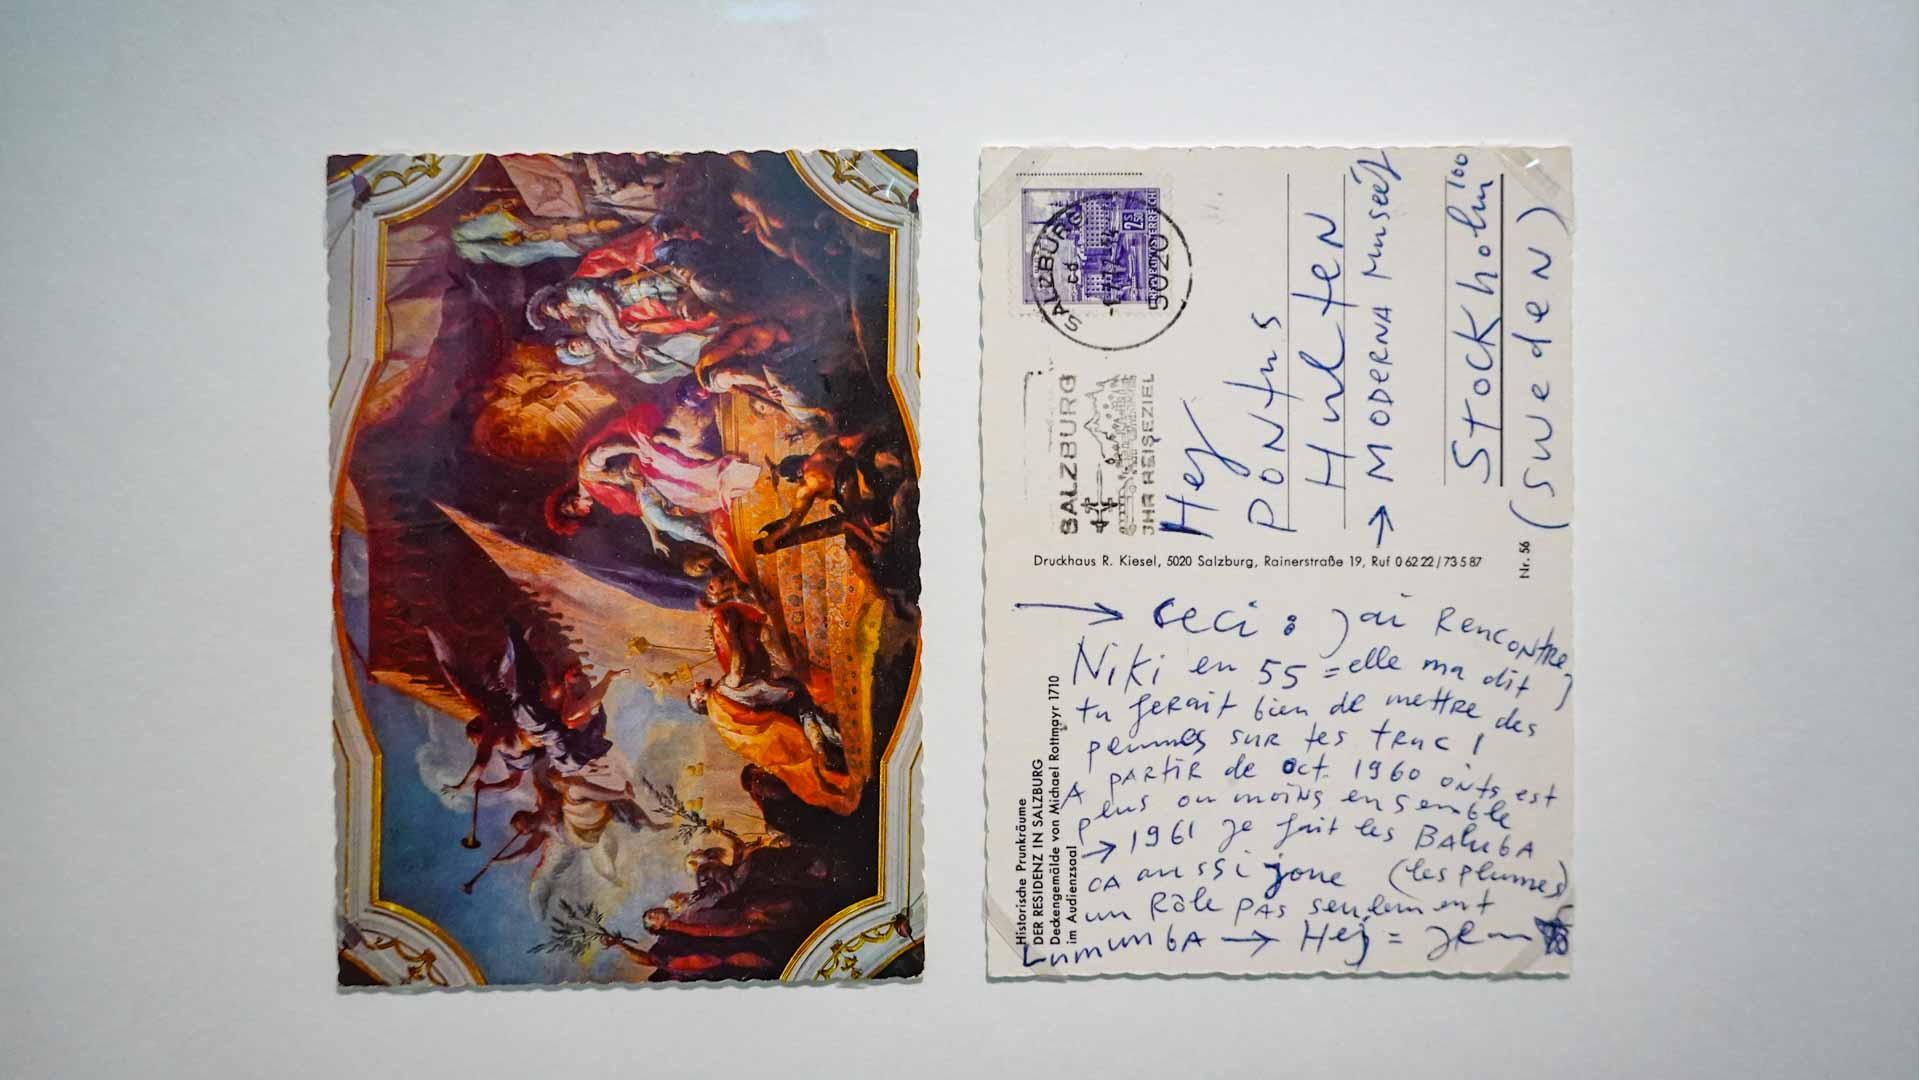 SALZBURG
5020
2,50
S
REPUBLIK ÖSTERREICH
SALZBURG
IHR REISEZIEL
Hej
PONtus
HulteN
→ MODERNA Museet
Stockholm 100
(SwedeN)
Druckhaus R. Kiesel, 5020 Salzburg, Rainerstraße 19, Ruf 0 62 22 / 73 5 87
Nr. 56
Historische Prunkräume
DER RESIDENZ IN SALZBURG
Deckengemälde von Michael Rottmayr 1710
im Audienzsaal
→ ceci : J ai RENCONtRE
Niki en 55 = elle ma dit
tu feRait bien de mettRe des
peumes suR tes tRuc !
A PARtiR de oct. 1960 est
plus ou moins ensemble
→ 1961 je fait les BALubA
CA aussi joue (les plumes)
un Rôle PAS seulement
LumumbA → Hej = Jean